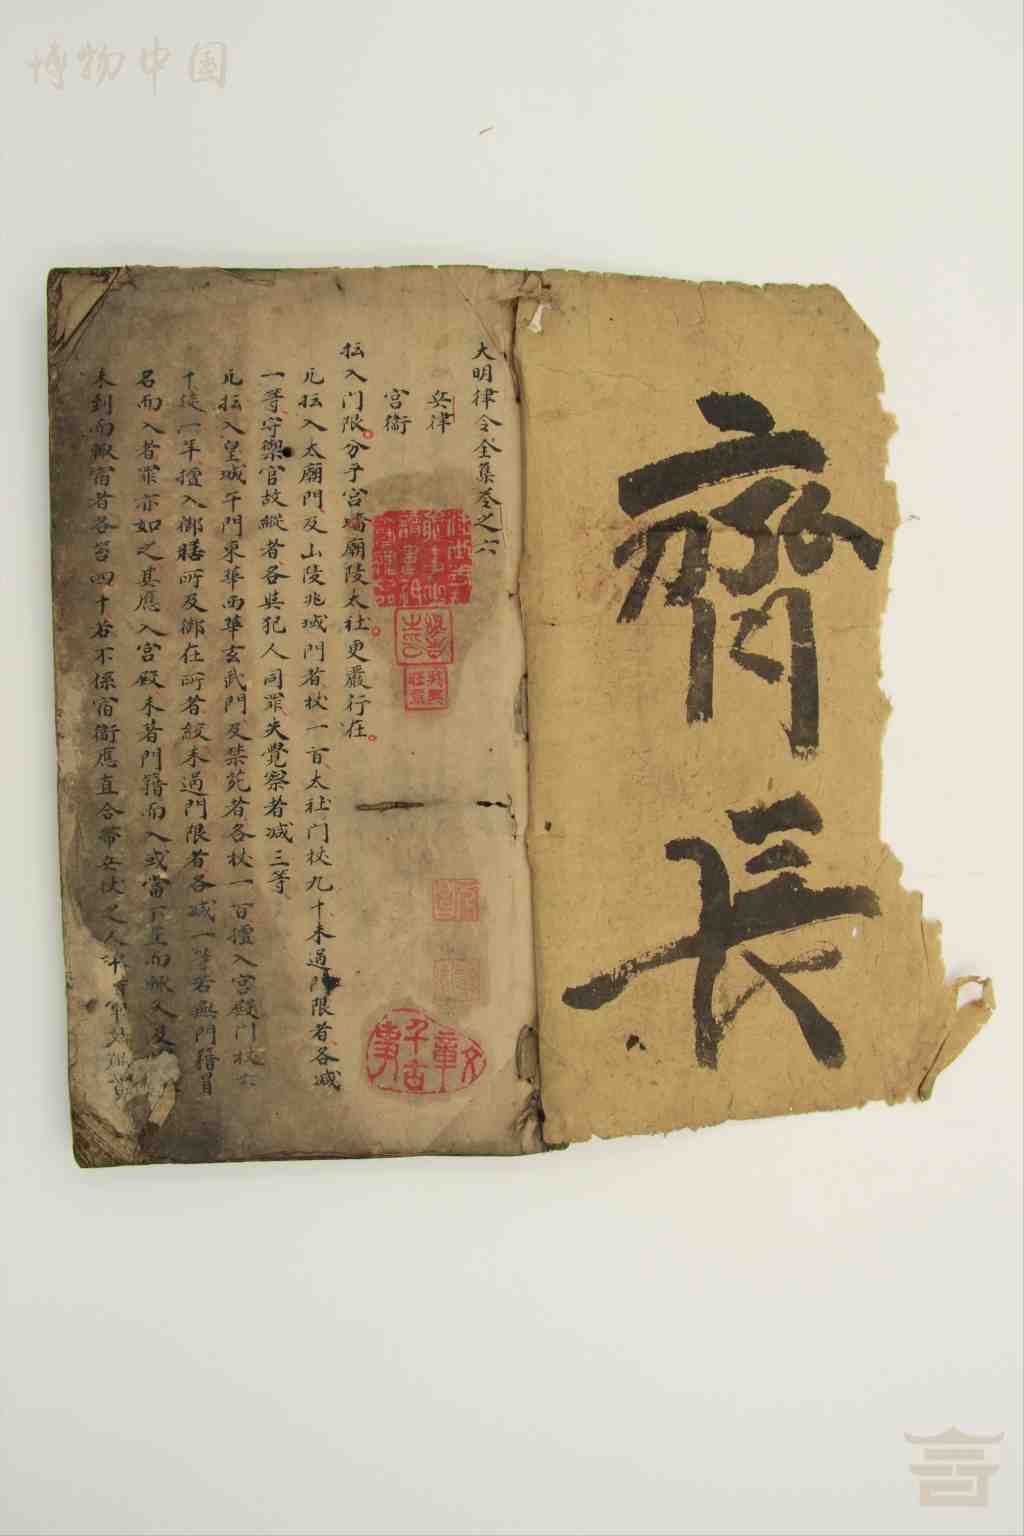 博物中国
齊長
大明律令全集卷之六
兵律
宫衛
抎入門限分乎宫墻廟陵太社更嚴行在
凡抎入太廟門及山陵兆域門者杖一百太社门杖九十未過門限者各减
一等守禦官故縱者各與犯人同罪失覺察者减三等
凡抎入皇城午門東華西華玄武門及禁苑者各杖一百擅入宫殿门杖六
十徒一年擅入御膳所及御在所者絞未過門限者各减一等若無門籍冒
名而入者罪亦如之其應入宫殿未著門籍而入或當下直而輒入及
未到而輒宿者各笞四十若不係宿衛應直合帶兵仗之人
文章千古事